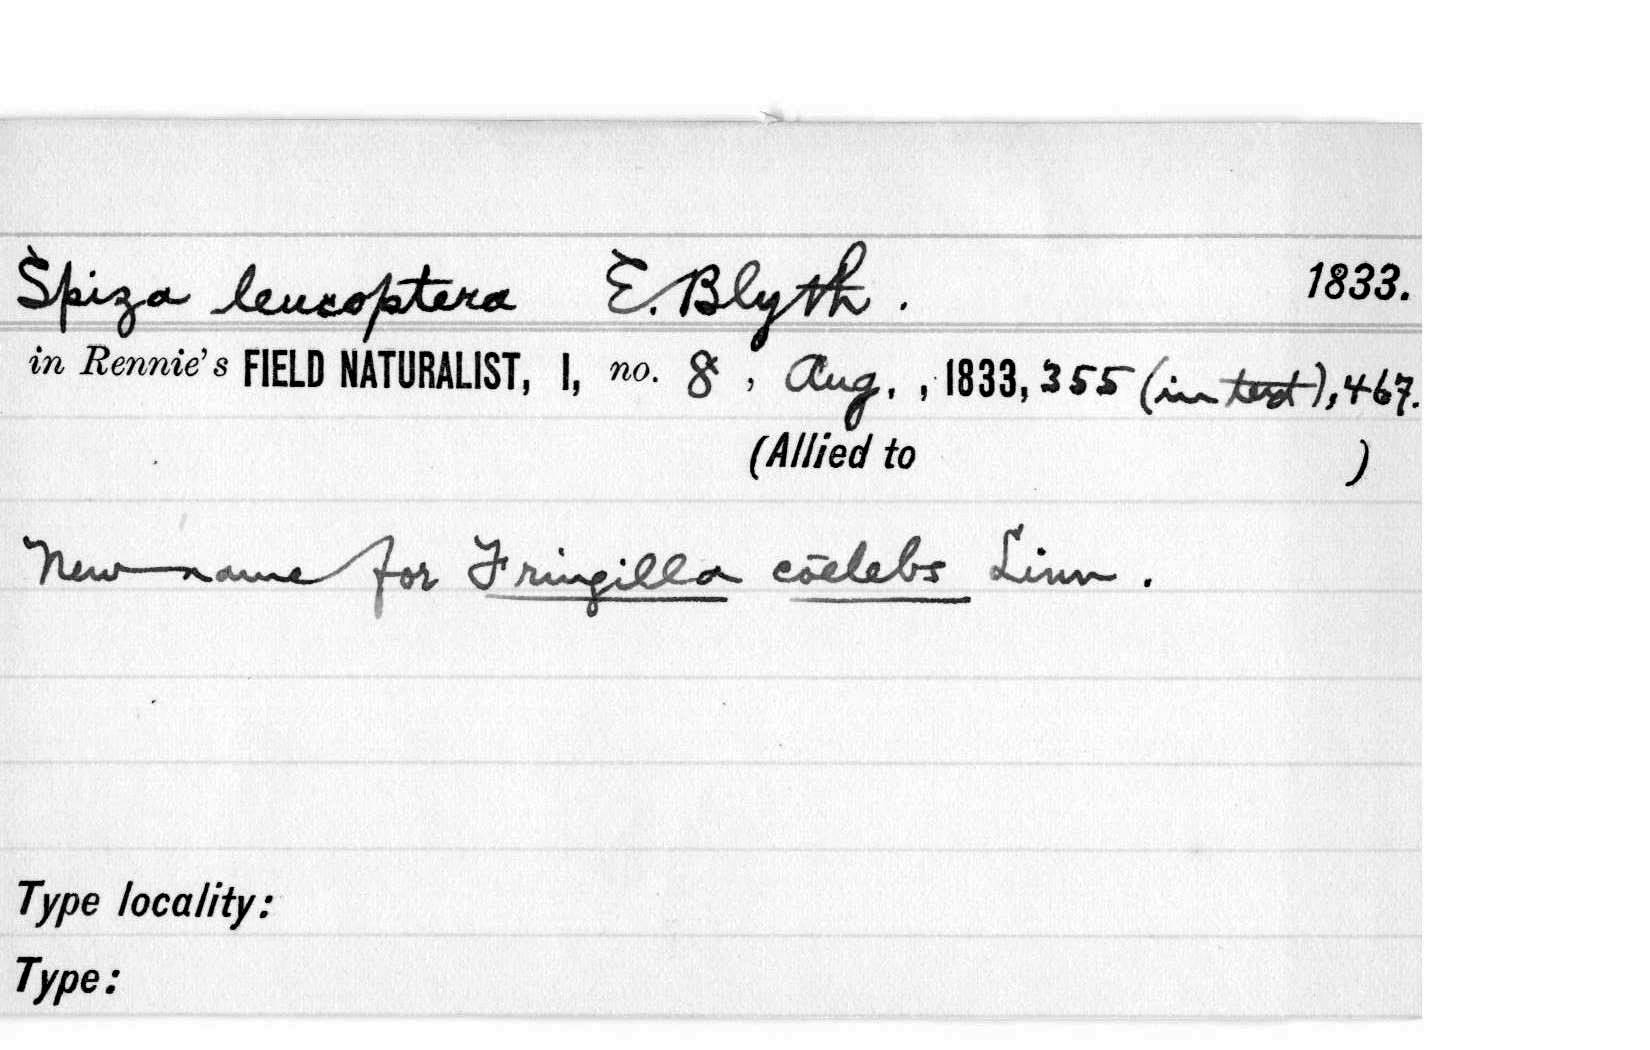 Spiza leucoptera E. Blyth. 1833.
in Rennie's FIELD NATURALIST, I, no. 8, Aug., , 1833, 355 (in text), 467.
(Allied to )
New name for Fringilla cœlebs Linn.
Type locality:
Type: